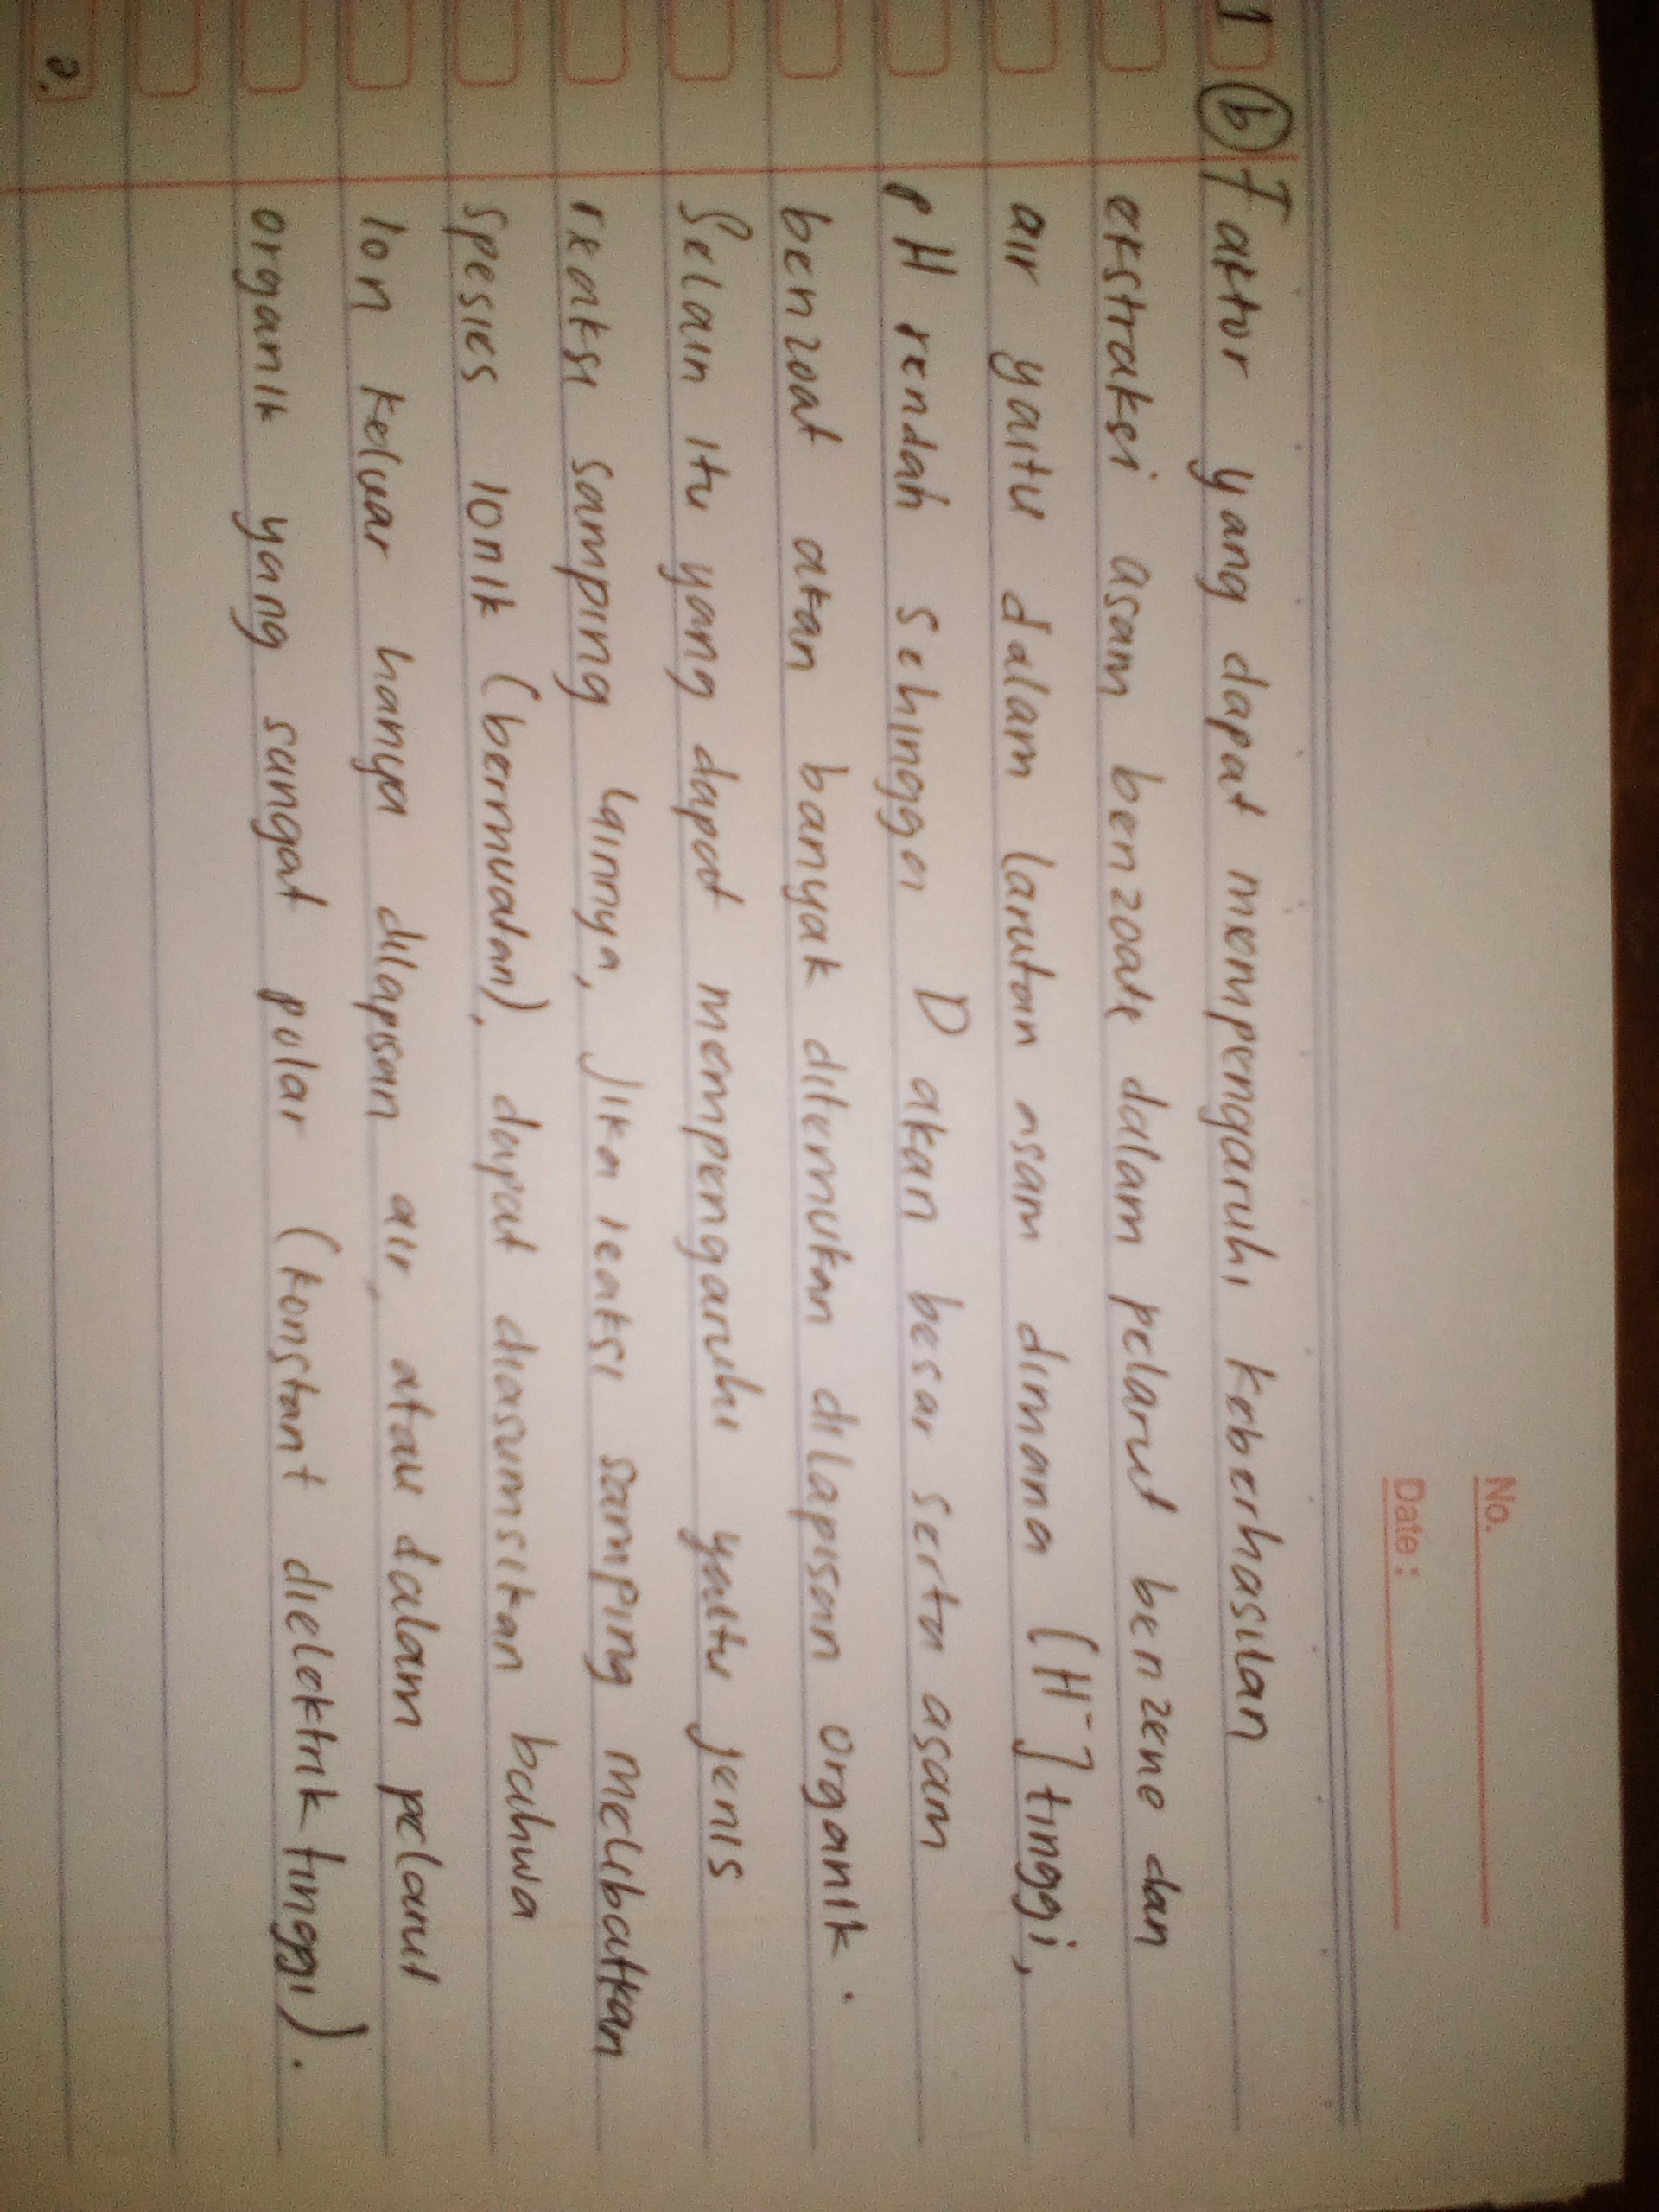 No.
Date :
1 b Faktor yang dapat mempengaruhi keberhasilan
ekstraksi asam benzoate dalam pelarut benzene dan
air yaitu dalam larutan asam dimana [H⁻] tinggi,
pH rendah sehingga D akan besar serta asam
benzoat akan banyak ditemukan dilapisan organik.
Selain itu yang dapat mempengaruhi yaitu jenis
reaksi samping lainnya, Jika reaksi samping melibatkan
spesies ionik (bermuatan), dapat diasumsikan bahwa
Ion keluar hanya dilapisan air, atau dalam pelarut
organik yang sangat polar (konstant dielektrik tinggi).
2.